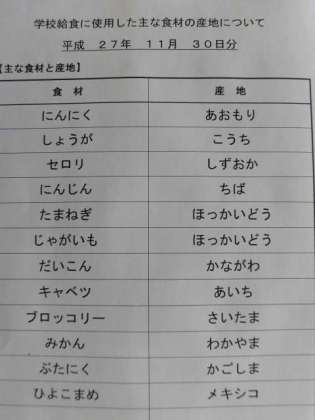 学校給食に使用した主な食材の産地について
平成 27年 11月 30日分
【主な食材と産地】
食 材 産 地
にんにく あおもり
しょうが こうち
セロリ しずおか
にんじん ちば
たまねぎ ほっかいどう
じゃがいも ほっかいどう
だいこん かながわ
キャベツ あいち
ブロッコリー さいたま
みかん わかやま
ぶたにく かごしま
ひよこまめ メキシコ